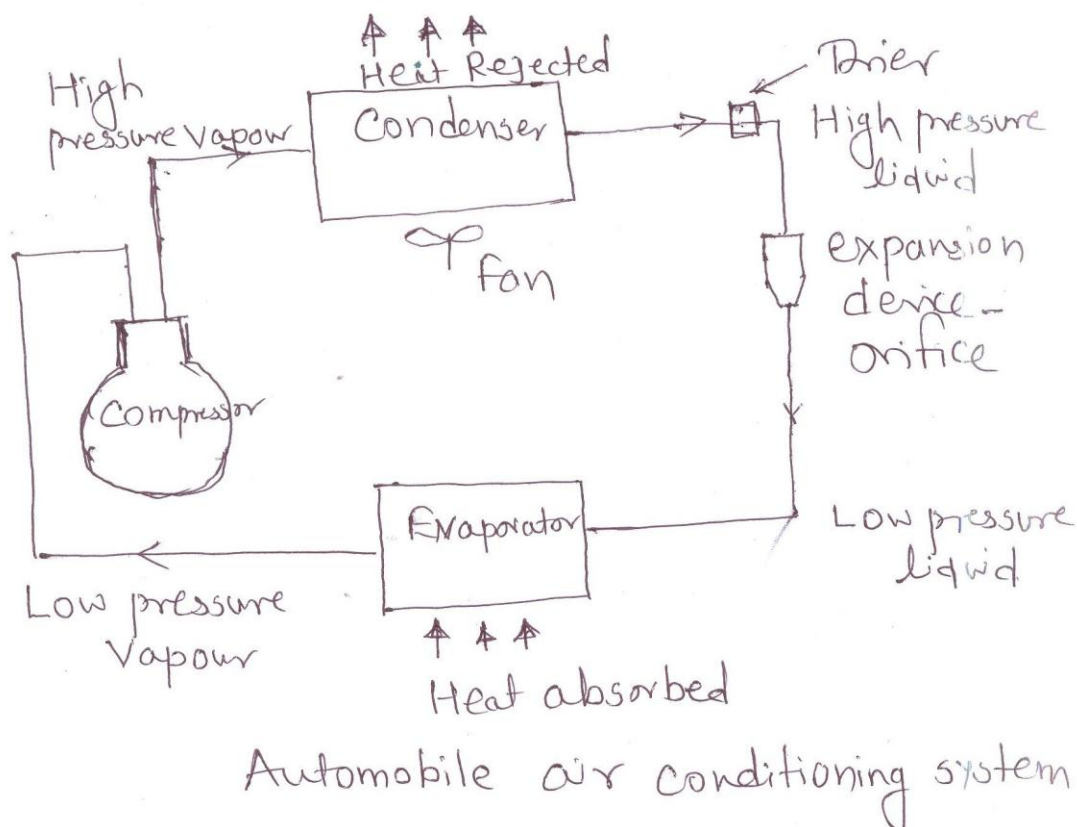 Heat Rejected
High
pressure Vapour
Condenser
Drier
High pressure
liquid
fan
expansion
device-
orifice
Compressor
Evaporator
Low pressure
liquid
Low pressure
Vapour
Heat absorbed
Automobile air conditioning system